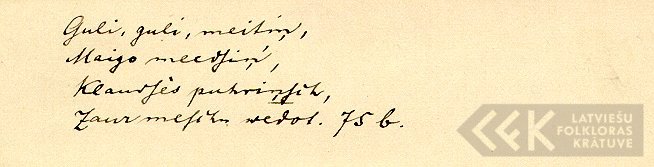 Guli, guli, meitiņ,
Maigo meedsiņ,
Klaudsēs puhriņsch,
Zaur meschu wedot. 75 b.
LATVIEŠU
FOLKLORAS
KRĀTUVE